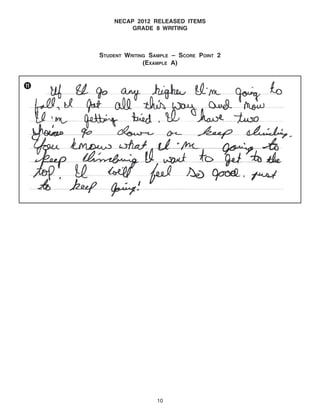 NECAP 2012 RELEASED ITEMS
GRADE 8 WRITING
STUDENT WRITING SAMPLE – SCORE POINT 2
(EXAMPLE A)
11 If I go any higher I'm going to
fall, I got all this way and now
I'm getting tied. I have two
go down or keep climbing.
You know what, I'm going to
keep climebing I want to get to the
top. I will feel so good, just
to keep going!
10